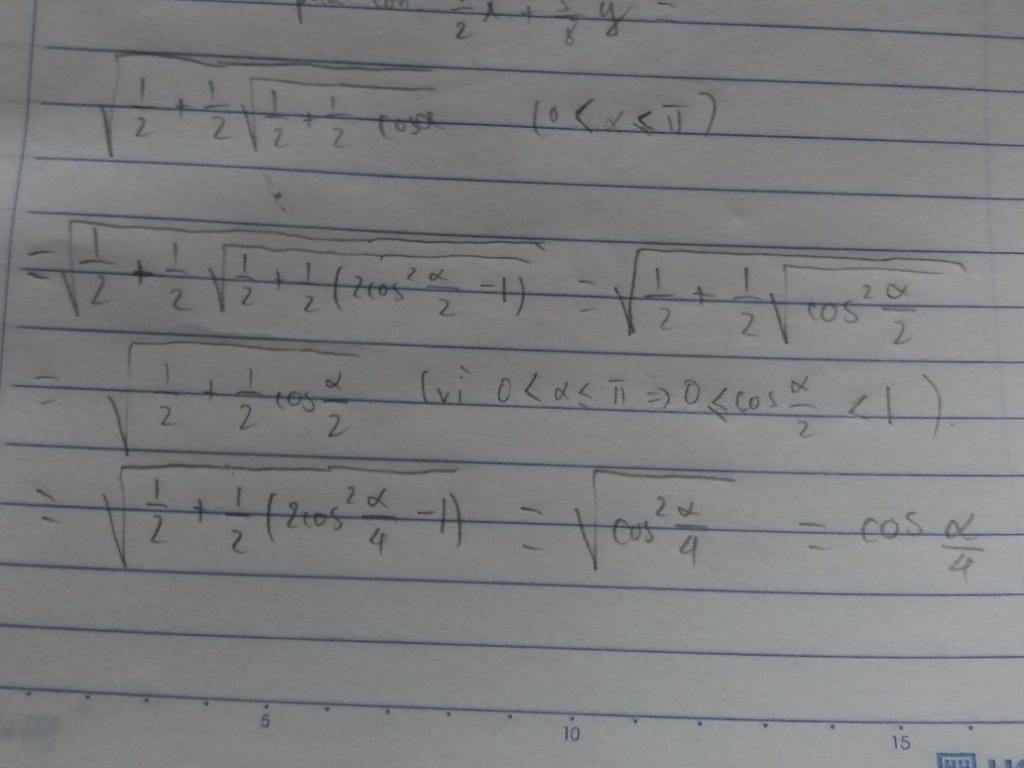 1/2 x + 5/8 y =
√(1/2 + 1/2 √(1/2 + 1/2 cosα)) (0 < α ≤ π)
= √(1/2 + 1/2 √(1/2 + 1/2 (2cos² α/2 - 1))) = √(1/2 + 1/2 √(cos² α/2))
= √(1/2 + 1/2 cos α/2) (vì 0 < α ≤ π ⇒ 0 ≤ cos α/2 < 1).
= √(1/2 + 1/2 (2cos² α/4 - 1)) = √(cos² α/4) = cos α/4
5 10 15